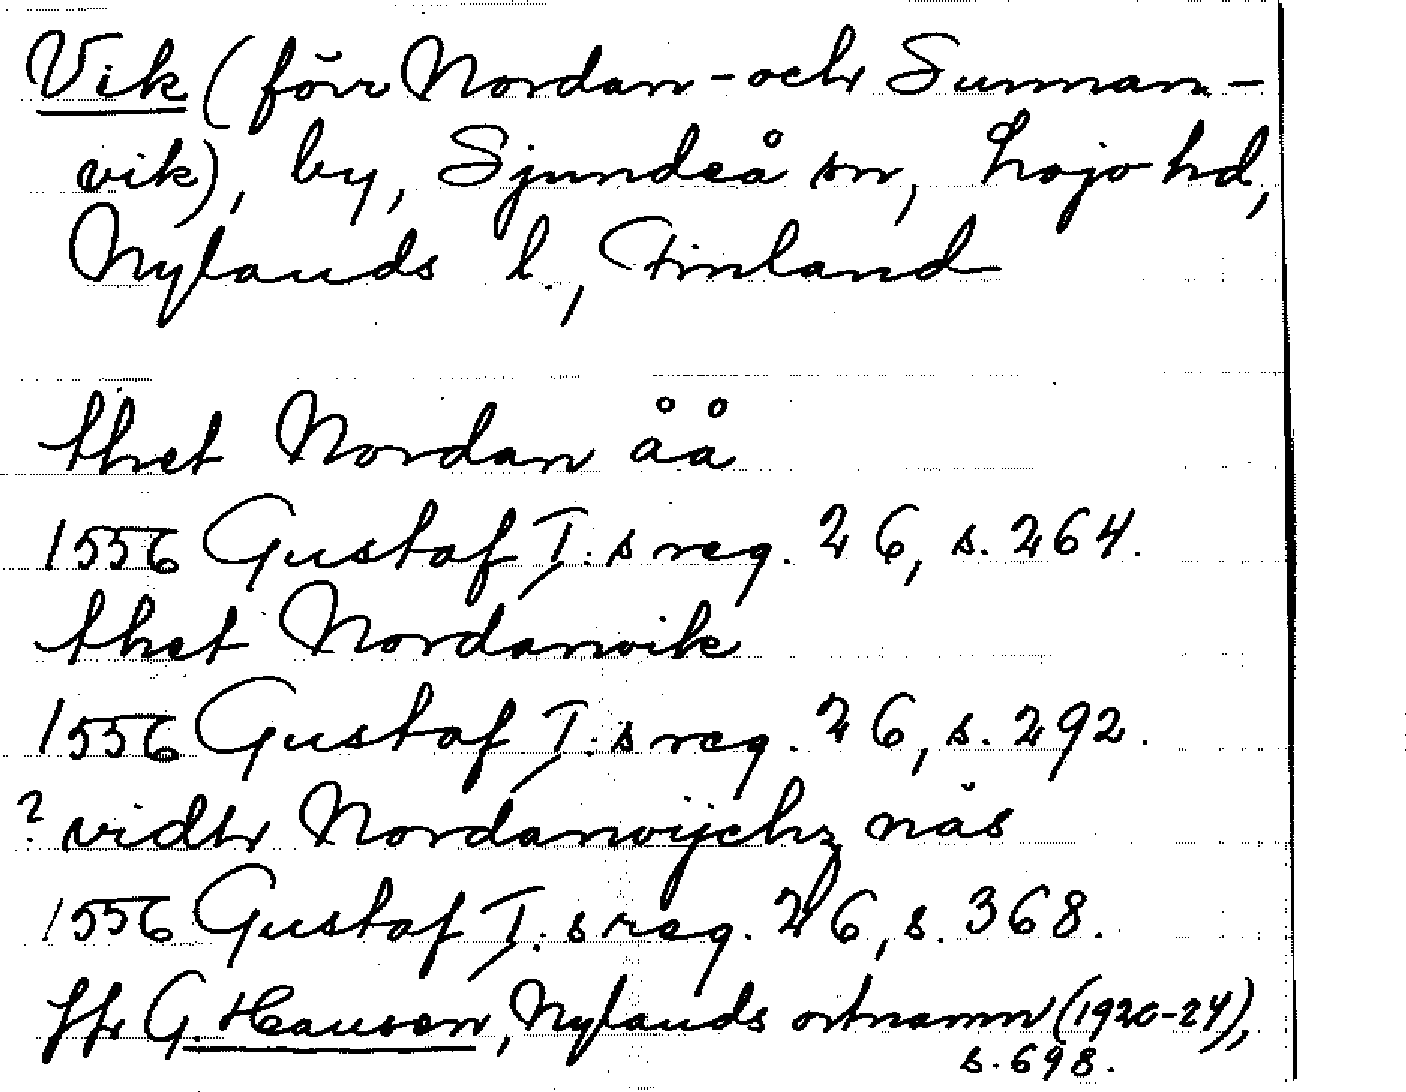 Vik (förr Nordan- och Sunnan-
vik), by, Sjundeå sn, Lojo hd,
Nylands l., Finland
thet Nordan åå
1556 Gustaf I:s reg. 26, s. 264.
thet Nordanvik
1556 Gustaf I:s reg. 26, s. 292.
? vidhr Nordanvijchz näs
1556 Gustaf I:s reg. 26, s. 368.
Jfr G. Hausen, Nylands ortnamn (1920-24),
s. 698.